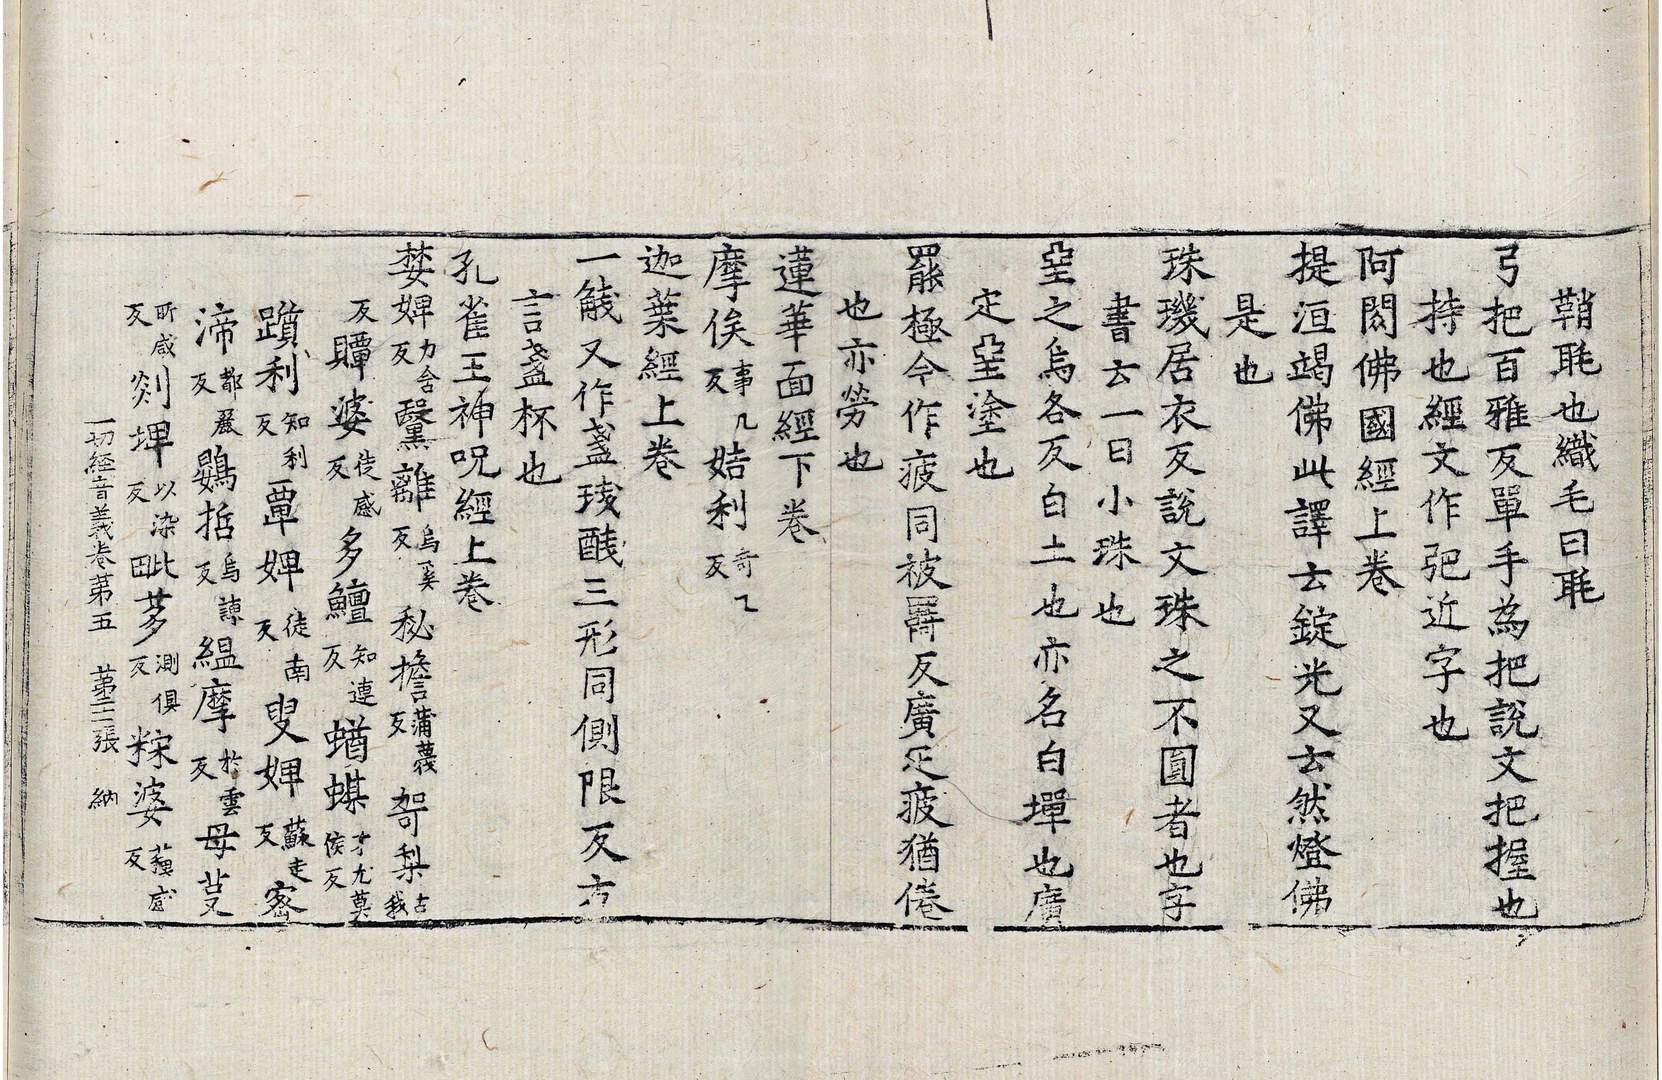 鞘毦也織毛曰毦
弓把百雅反單手為把說文把握也
持也經文作弝近字也
阿閦佛國經上卷
提洹竭佛此譯云錠光又云然燈佛
是也
珠璣居衣反說文珠之不圓者也字
書云一曰小珠也
堊之烏各反白土也亦名白墠也廣
定堊塗也
羆極今作疲同被羇反廣疋疲猶倦
也亦勞也
蓮華面經下卷
摩俟事几反 姞利奇乙反
迦葉經上卷
一㦮又作盞琖醆三形同側限反方
言盞杯也
孔雀王神呪經上卷
婪婢力含反 黳離烏奚反 秘擔蒲蔑反 哿梨古我
反 贉婆徒感反 多鱣知連反 蝤蝶才尤莫侯反
躓利知利反 覃婢徒南反 叟婢蘇走反 窰
渧都麗反 鷃哲烏諫反 緼摩於雲反 母芟
所咸反 剡婢以染反 毗芗測俱反 粽婆蘓感反
一切經音義卷第五 第三張 納